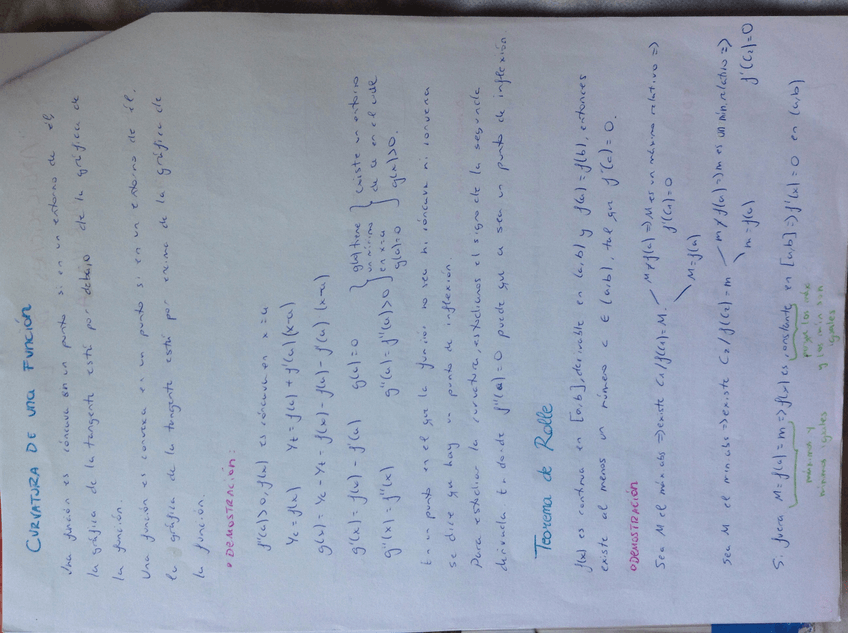 CURVATURA DE UNA FUNCIÓN
Una función es cóncava en un punto si en un entorno de él
la gráfica de la tangente está por debajo de la gráfica de
la función.
Una función es convexa en un punto si en un entorno de él.
la gráfica de la tangente está por encima de la gráfica de
la función.
• DEMOSTRACIÓN:
f''(a)>0, f(x) es cóncava en x=a
Yc=f(x) Yt=f(a)+f'(a)(x-a)
g(x)=Yc-Yt=f(x)-f(a)-f'(a)(x-a)
g'(x)=f'(x)-f'(a) g'(a)=0
g''(x)=f''(x) g''(a)=f''(a)>0
g(x) tiene
un mínimo
en x=a
g(a)=0
Existe un entorno
de a en el cual
g(x)>0.
En un punto en el que la función no sea ni cóncava ni convexa
se dice que hay un punto de inflexión.
Para estudiar la curvatura, estudiamos el signo de la segunda
derivada. En donde f''(a)=0 puede que a sea un punto de inflexión
Teorema de Rolle
f(x) es continua en [a,b], derivable en (a,b) y f(a)=f(b), entonces
existe al menos un número c ∈ (a,b), tal que f'(c)=0.
• DEMOSTRACIÓN
Sea M el máx abs ⇒ existe c1/f(c1)=M. M≠f(a) ⇒ M es un máximo relativo ⇒
f'(c1)=0
M=f(a)
Sea m el mín abs ⇒ existe c2/f(c2)=m m≠f(a) ⇒ m es un mín. relativo ⇒
f'(c2)=0
m=f(a)
Si fuera M=f(a)=m ⇒ f(x) es constante en [a,b] ⇒ f'(x)=0 en (a,b)
máximo y
mínimo iguales
porque los máx
y los mín son
iguales